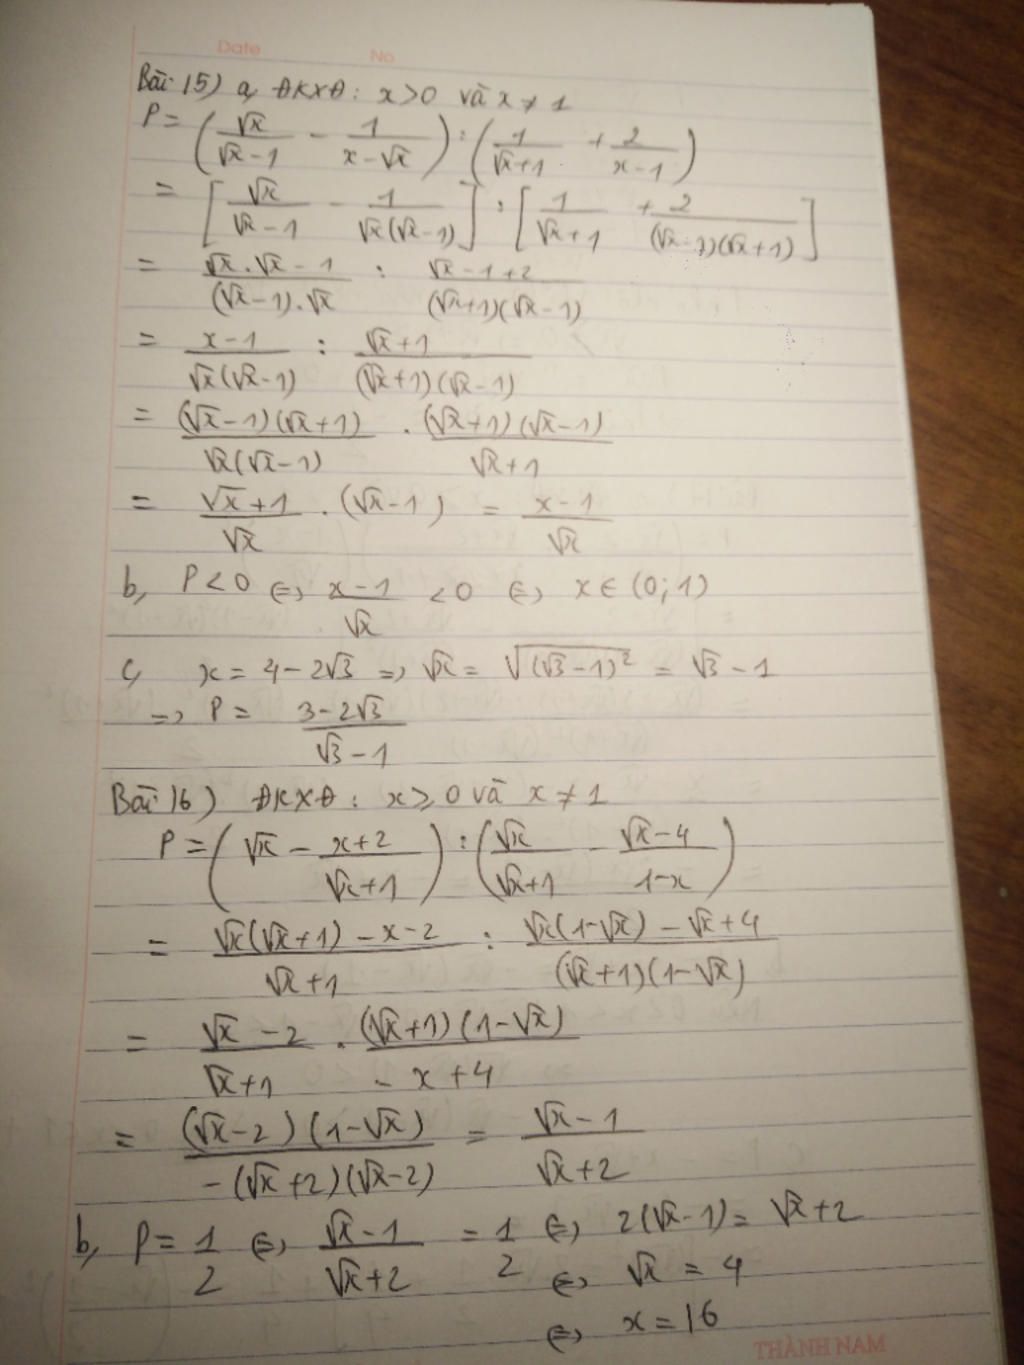 Date No
Bài 15) a, ĐKXĐ: x>0 và x ≠ 1
P = (√x/(√x-1) - 1/(x-√x)) : (1/(√x+1) + 2/(x-1))
= [√x/(√x-1) - 1/(√x(√x-1))] : [1/(√x+1) + 2/((√x-1)(√x+1))]
= (√x.√x-1)/((√x-1).√x) : (√x-1+2)/((√x+1)(√x-1))
= (x-1)/(√x(√x-1)) : (√x+1)/((√x+1)(√x-1))
= ((√x-1)(√x+1))/(√x(√x-1)) . ((√x+1)(√x-1))/(√x+1)
= (√x+1)/√x . (√x-1) = (x-1)/√x
b, P<0 ⇔ (x-1)/√x <0 ⇔ x∈(0;1)
c, x = 4-2√3 ⇒ √x = √((√3-1)²) = √3-1
⇒ P = (3-2√3)/(√3-1)
Bài 16) ĐKXĐ: x≥0 và x ≠ 1
P = (√x - (x+2)/(√x+1)) : (√x/(√x+1) - (√x-4)/(1-x))
= (√x(√x+1)-x-2)/(√x+1) : (√x(1-√x)-√x+4)/((√x+1)(1-√x))
= (√x-2)/(√x+1) . ((√x+1)(1-√x))/(-x+4)
= ((√x-2)(1-√x))/(-(√x+2)(√x-2)) = (√x-1)/(√x+2)
b, P = 1/2 ⇔ (√x-1)/(√x+2) = 1/2 ⇔ 2(√x-1) = √x+2
⇔ √x = 4
⇔ x = 16
THÀNH NAM